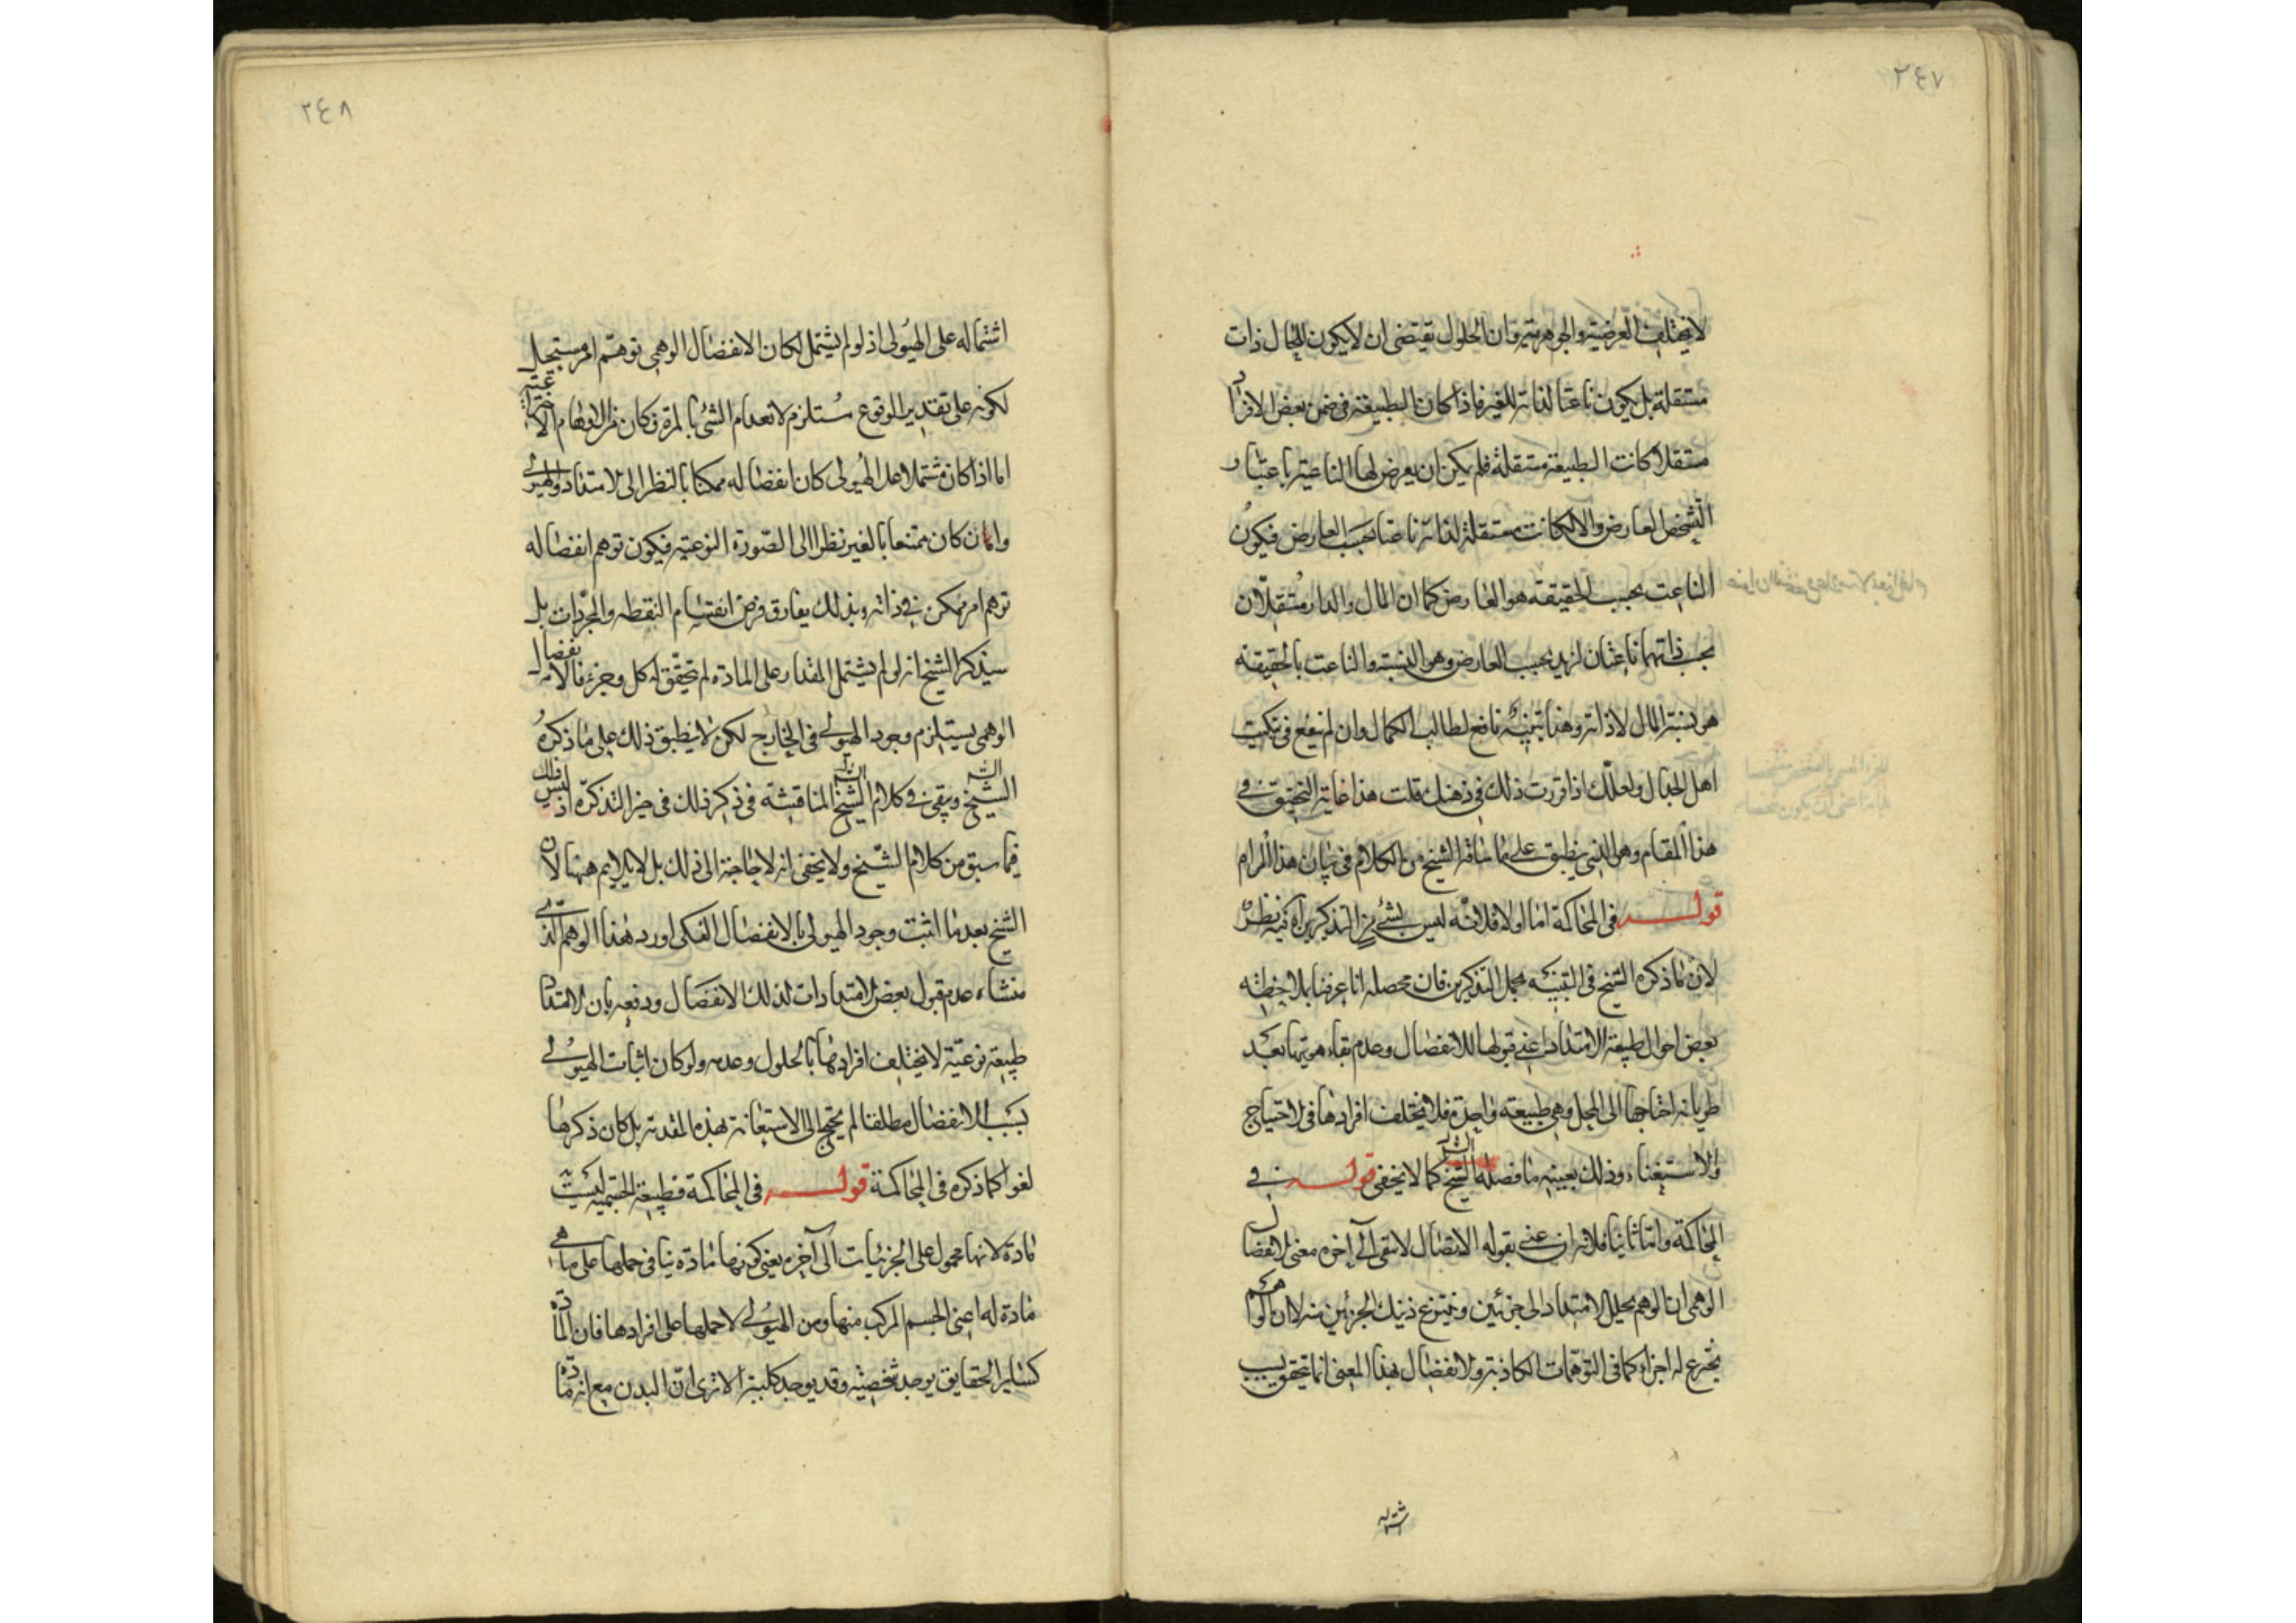 ٢٤٧
لا يختلف بالعرضية والجوهرية وان الحلول يقتضى ان لا يكون للحال ذات
مستقلة بل يكون ناعتا لذاته للغير فاذا كان الطبيعة فى ضمن بعض الافراد
مستقلا كانت الطبيعة مستقلة فلم يكن ان يعرض لها الناعتية باعتبار
الشخص العارض والا لكانت مستقلة لذاته ناعتا بحسب العارض فيكون
الناعت بحسب الحقيقة هو العارض كما ان المال والدار مستقلان
بحسب ذاتهما ناعتان لزيد بحسب العارض وهو النسبة والناعت بالحقيقة
هو نسبة المال لا ذاته وهذا تنبيه نافع لطالب الكمال وان لم ينفع فى تبكيت
اهل الجدال ولعلك اذا قررت ذلك فى ذهنك قلت هذا غاية التحقيق فى
هذا المقام وهو الذى ينطبق على ما ساقه الشيخ من الكلام فى بيان هذا المرام
قوله فى المحاكمة اما اولا فلانه ليس بشئ من التذكيرين اه فيه نظر
لان ما ذكره الشيخ فى التنبيه مجمل التذكيرين فان محصله انا عرفنا بملاحظة
بعض احوال طبيعة الامتداد اعنى قبولها للانفصال وعدم بقاء هويتها بعد
طريانه احتياجها الى المحل وهى طبيعة واحدة فلا يختلف افرادها فى الاحتياج
والاستغناء وذلك بعينه ما فصله الشيخ كما لا يخفى قوله فى
المحاكمة واما ثانيا فلانه ان عنى بقوله الاتصال لا يبقى آلى آخره معنى الانفصال
الوهمى ان الوهم يحلل الامتداد الى جزئين وينتزع ذينك الجزئين منه لا ان الوهم
يخترع له اجزاء كما فى التوهمات الكاذبة والانفصال بهذا المعنى انما يتحقق بسبب
اشتماله
٢٤٨
اشتماله على الهيولى اذ لو لم يشتمل لكان الانفصال الوهمى توهم امر مستحيل
لكونه على تقدير الوقوع مستلزم لانعدام الشئ بالمرة فكان من الاوهام الاختراعية
اما اذا كان مشتملا على الهيولى كان انفصاله ممكنا بالنظر الى الامتداد والهيولى
وان كان ممتنعا بالغير نظرا الى الصورة النوعية فيكون توهم انفصاله
توهم امر ممكن فى ذاته وبذلك يفارق فرض انقسام النقطه والمجردات بل
سيذكر الشيخ انه لو لم يشتمل المقدار على المادة لم يتحقق له كل وجزء فالانفصال
الوهمى يستلزم وجود الهيولى فى الخارج لكن لا ينطبق ذلك على ما ذكره
الشيخ ويبقى فى كلام الشيخ المناقشة فى ذكر ذلك فى حيز التذكرة اذ ليس ذلك
فيما سبق من كلام الشيخ ولا يخفى انه لا حاجة الى ذلك بل لا يلايم ههنا لان
الشيخ بعد ما اثبت وجود الهيولى بالانفصال الفكى اورد هذا الوهم الذى
منشاءه عدم قبول بعض الامتدادات لذلك الانفصال ودفعه بان الامتداد
طبيعة نوعية لا يختلف افرادها بالحلول وعدمه ولو كان اثبات الهيولى
بسبب الانفصال مطلقا لم يحتج الى الاستعانة بهذه المقدمة بل كان ذكرها
لغوا كما ذكره فى المحاكمة قوله فى المحاكمة فطبيعة الجسمية ليست
مادة لانها محمول على الجزئيات آلى آخره يعنى كونها مادة ينافى حملها على ما هى
مادة له اعنى الجسم المركب منها ومن الهيولى لا حملها على افرادها فان المادة
كساير الحقايق يوجد شخصية وقد يوجد كلية الا ترى ان البدن مع انه مادة